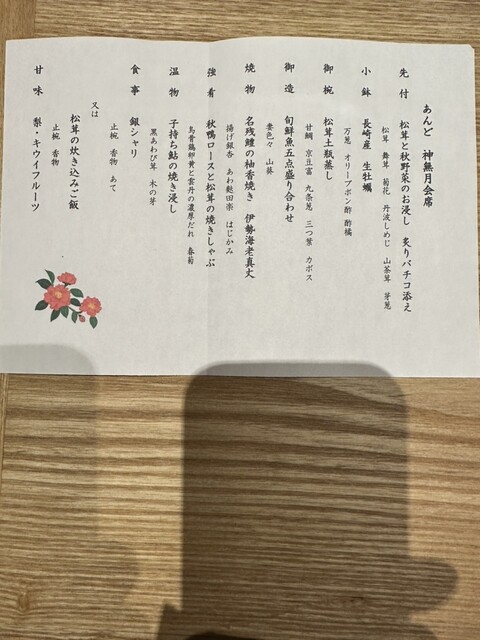 あんど 神無月会席
先付 松茸と秋野菜のお浸し 炙りバチコ添え
松茸 舞茸 菊花 丹波しめじ 山茶茸 芽葱
小鉢 長崎産 生牡蠣
万葱 オリーブポン酢 酢橘
御椀 松茸土瓶蒸し
甘鯛 京豆富 九条葱 三つ葉 カボス
御造 旬鮮魚五点盛り合わせ
妻色々 山葵
焼物 名残鱧の柚香焼き 伊勢海老真丈
揚げ銀杏 あわ麩田楽 はじかみ
強肴 秋鴨ロースと松茸の焼きしゃぶ
烏骨鶏卵黄と雲丹の濃厚だれ 春菊
温物 子持ち鮎の焼き浸し
黒あわび茸 木の芽
食事 銀シャリ
止椀 香物 あて
又は
松茸の炊き込みご飯
止椀 香物
甘味 梨・キウイフルーツ